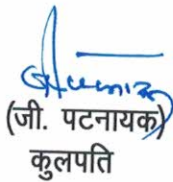 (जी. पटनायक)
कुलपति